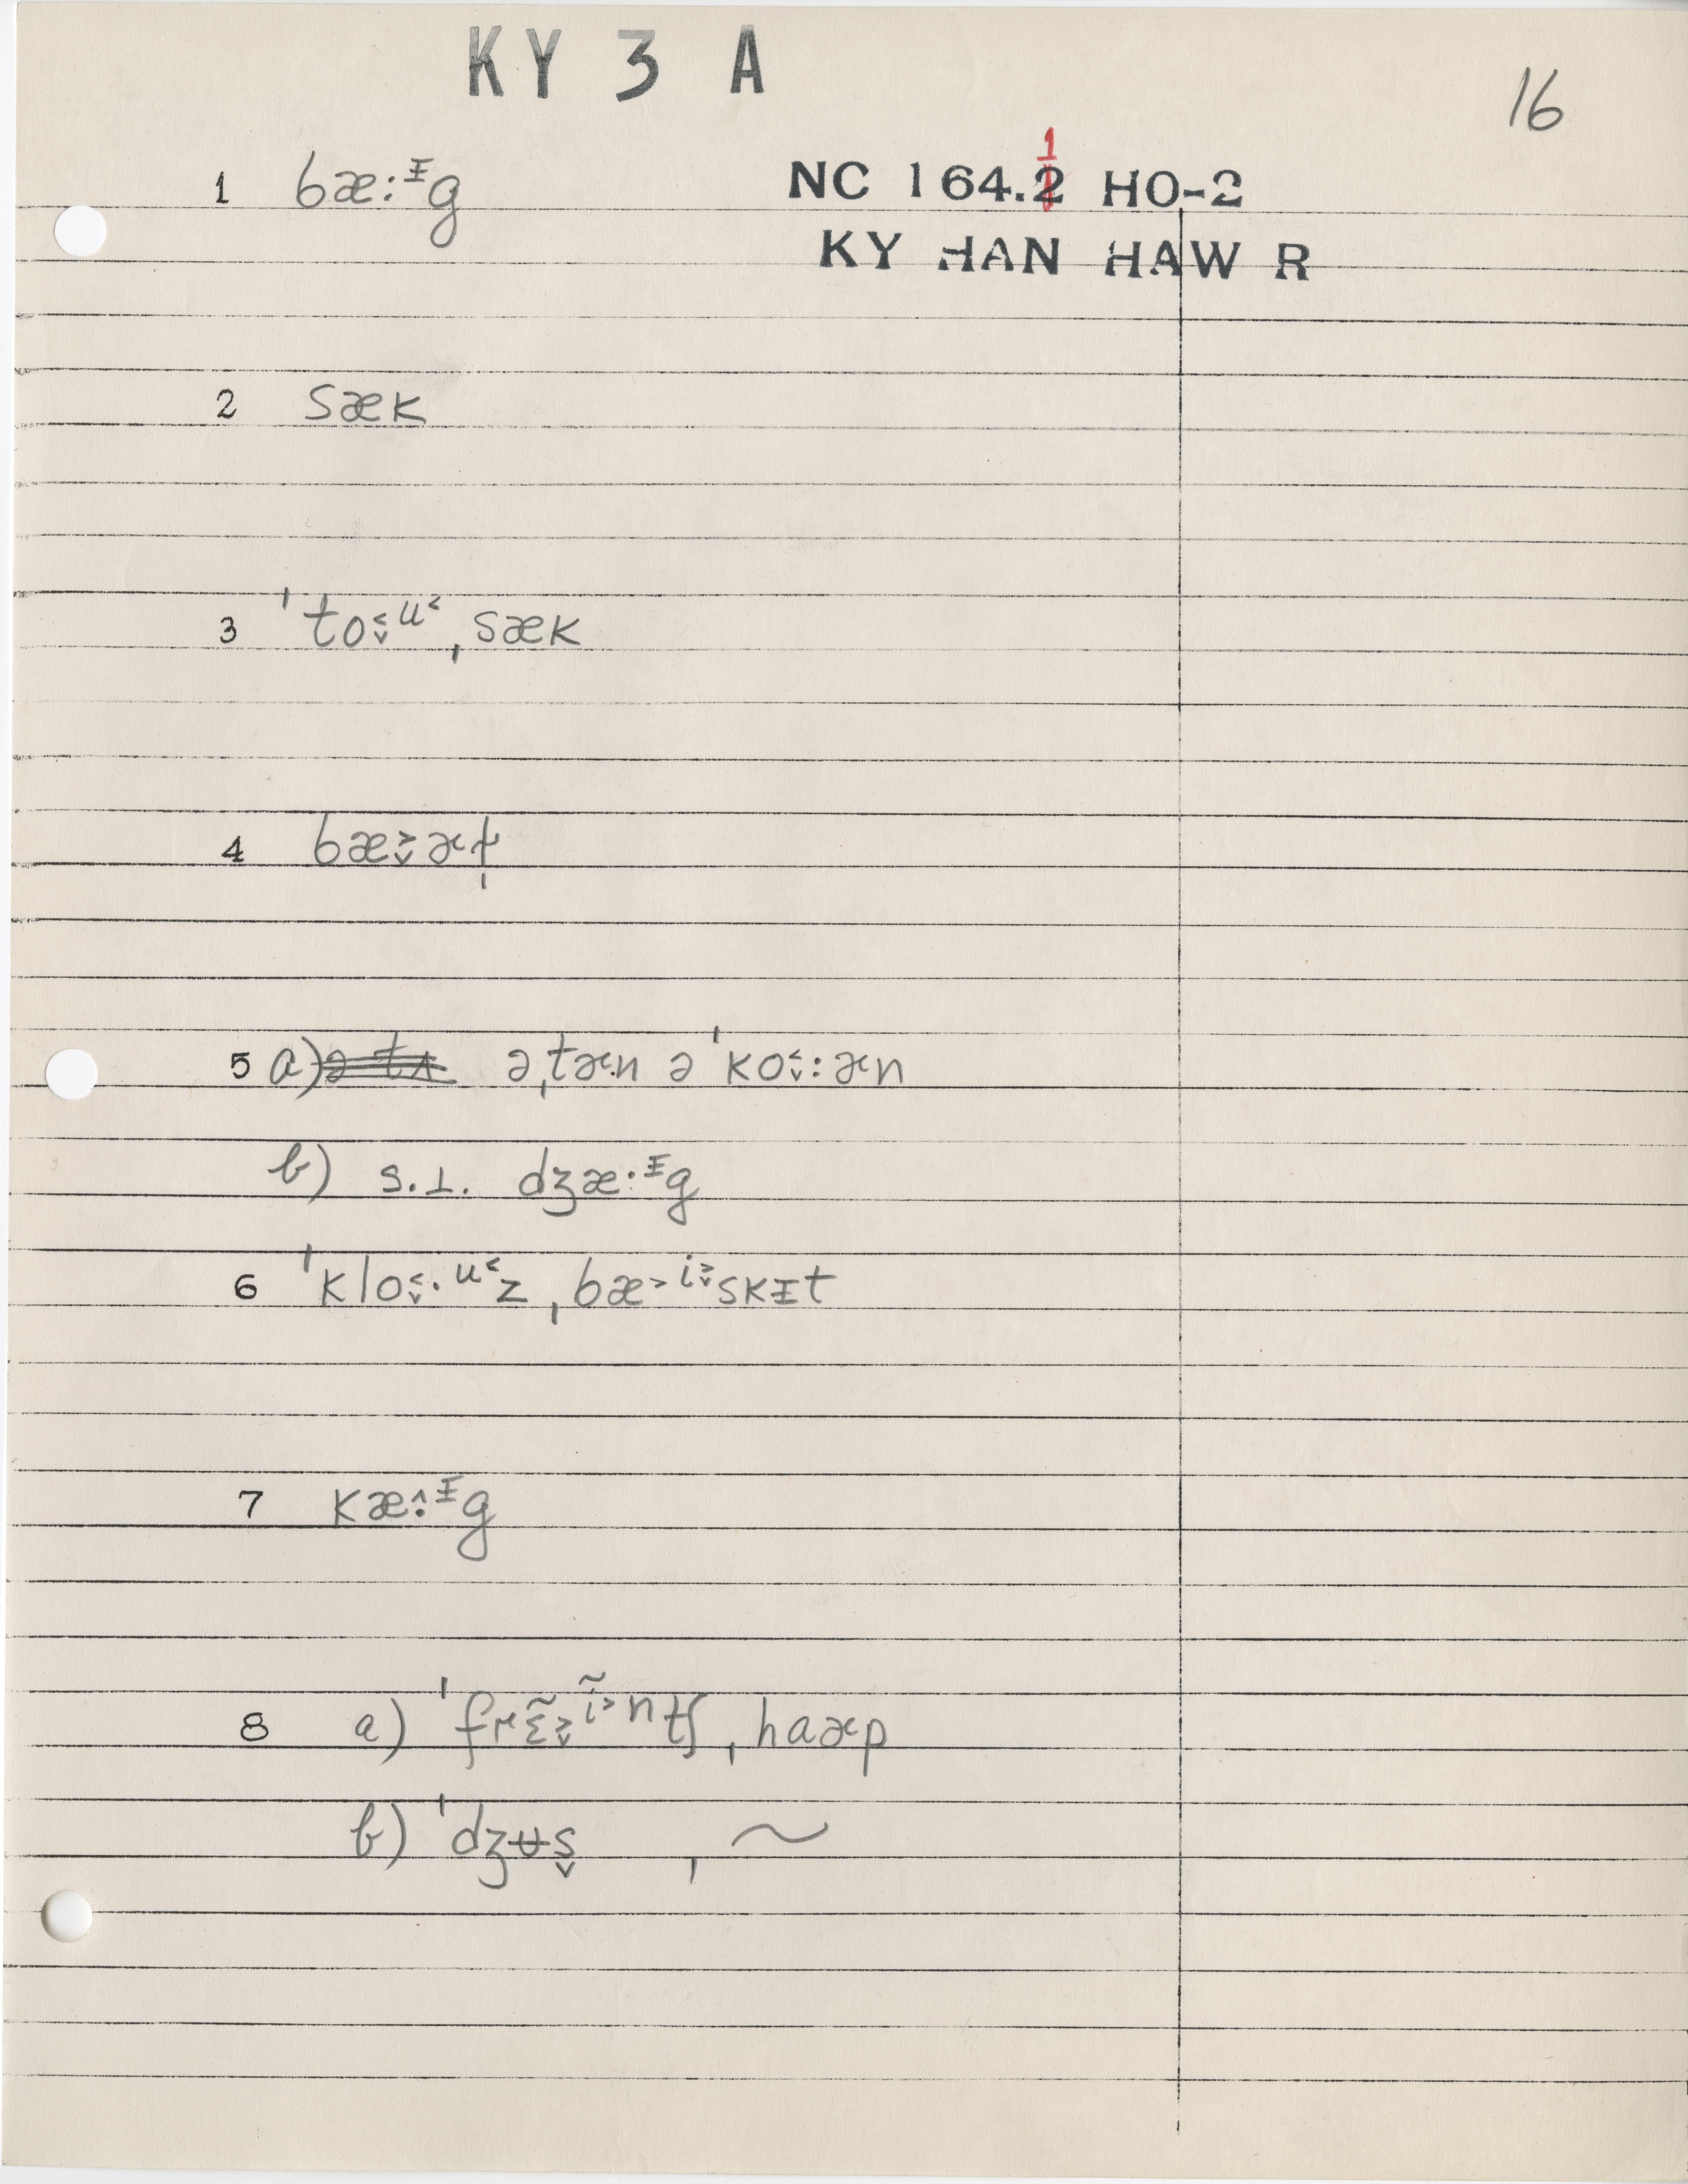 KY 3 A
16
1 bæ:ᵻg
NC 164.2 HO-2
1
KY HAN HAW R
2 sæk
3 ˈto˂˯u˂ ˌsæk
4 bæ˃˯ɚɫ̩
5 a) əˌtɚn ə ˈko˂˯:ɚn
b) s.ɪ. dʒæ·ᵻg
6 ˈklo˂˯·u˂z ˌbæ˃i˃˯skᵻt
7 kæ˄:ᵻg
8 a) ˈfrɛ̃˃˯ĩ˃ntʃ ˌhaɚp
b) ˈdʒʉs̬ ˌ~